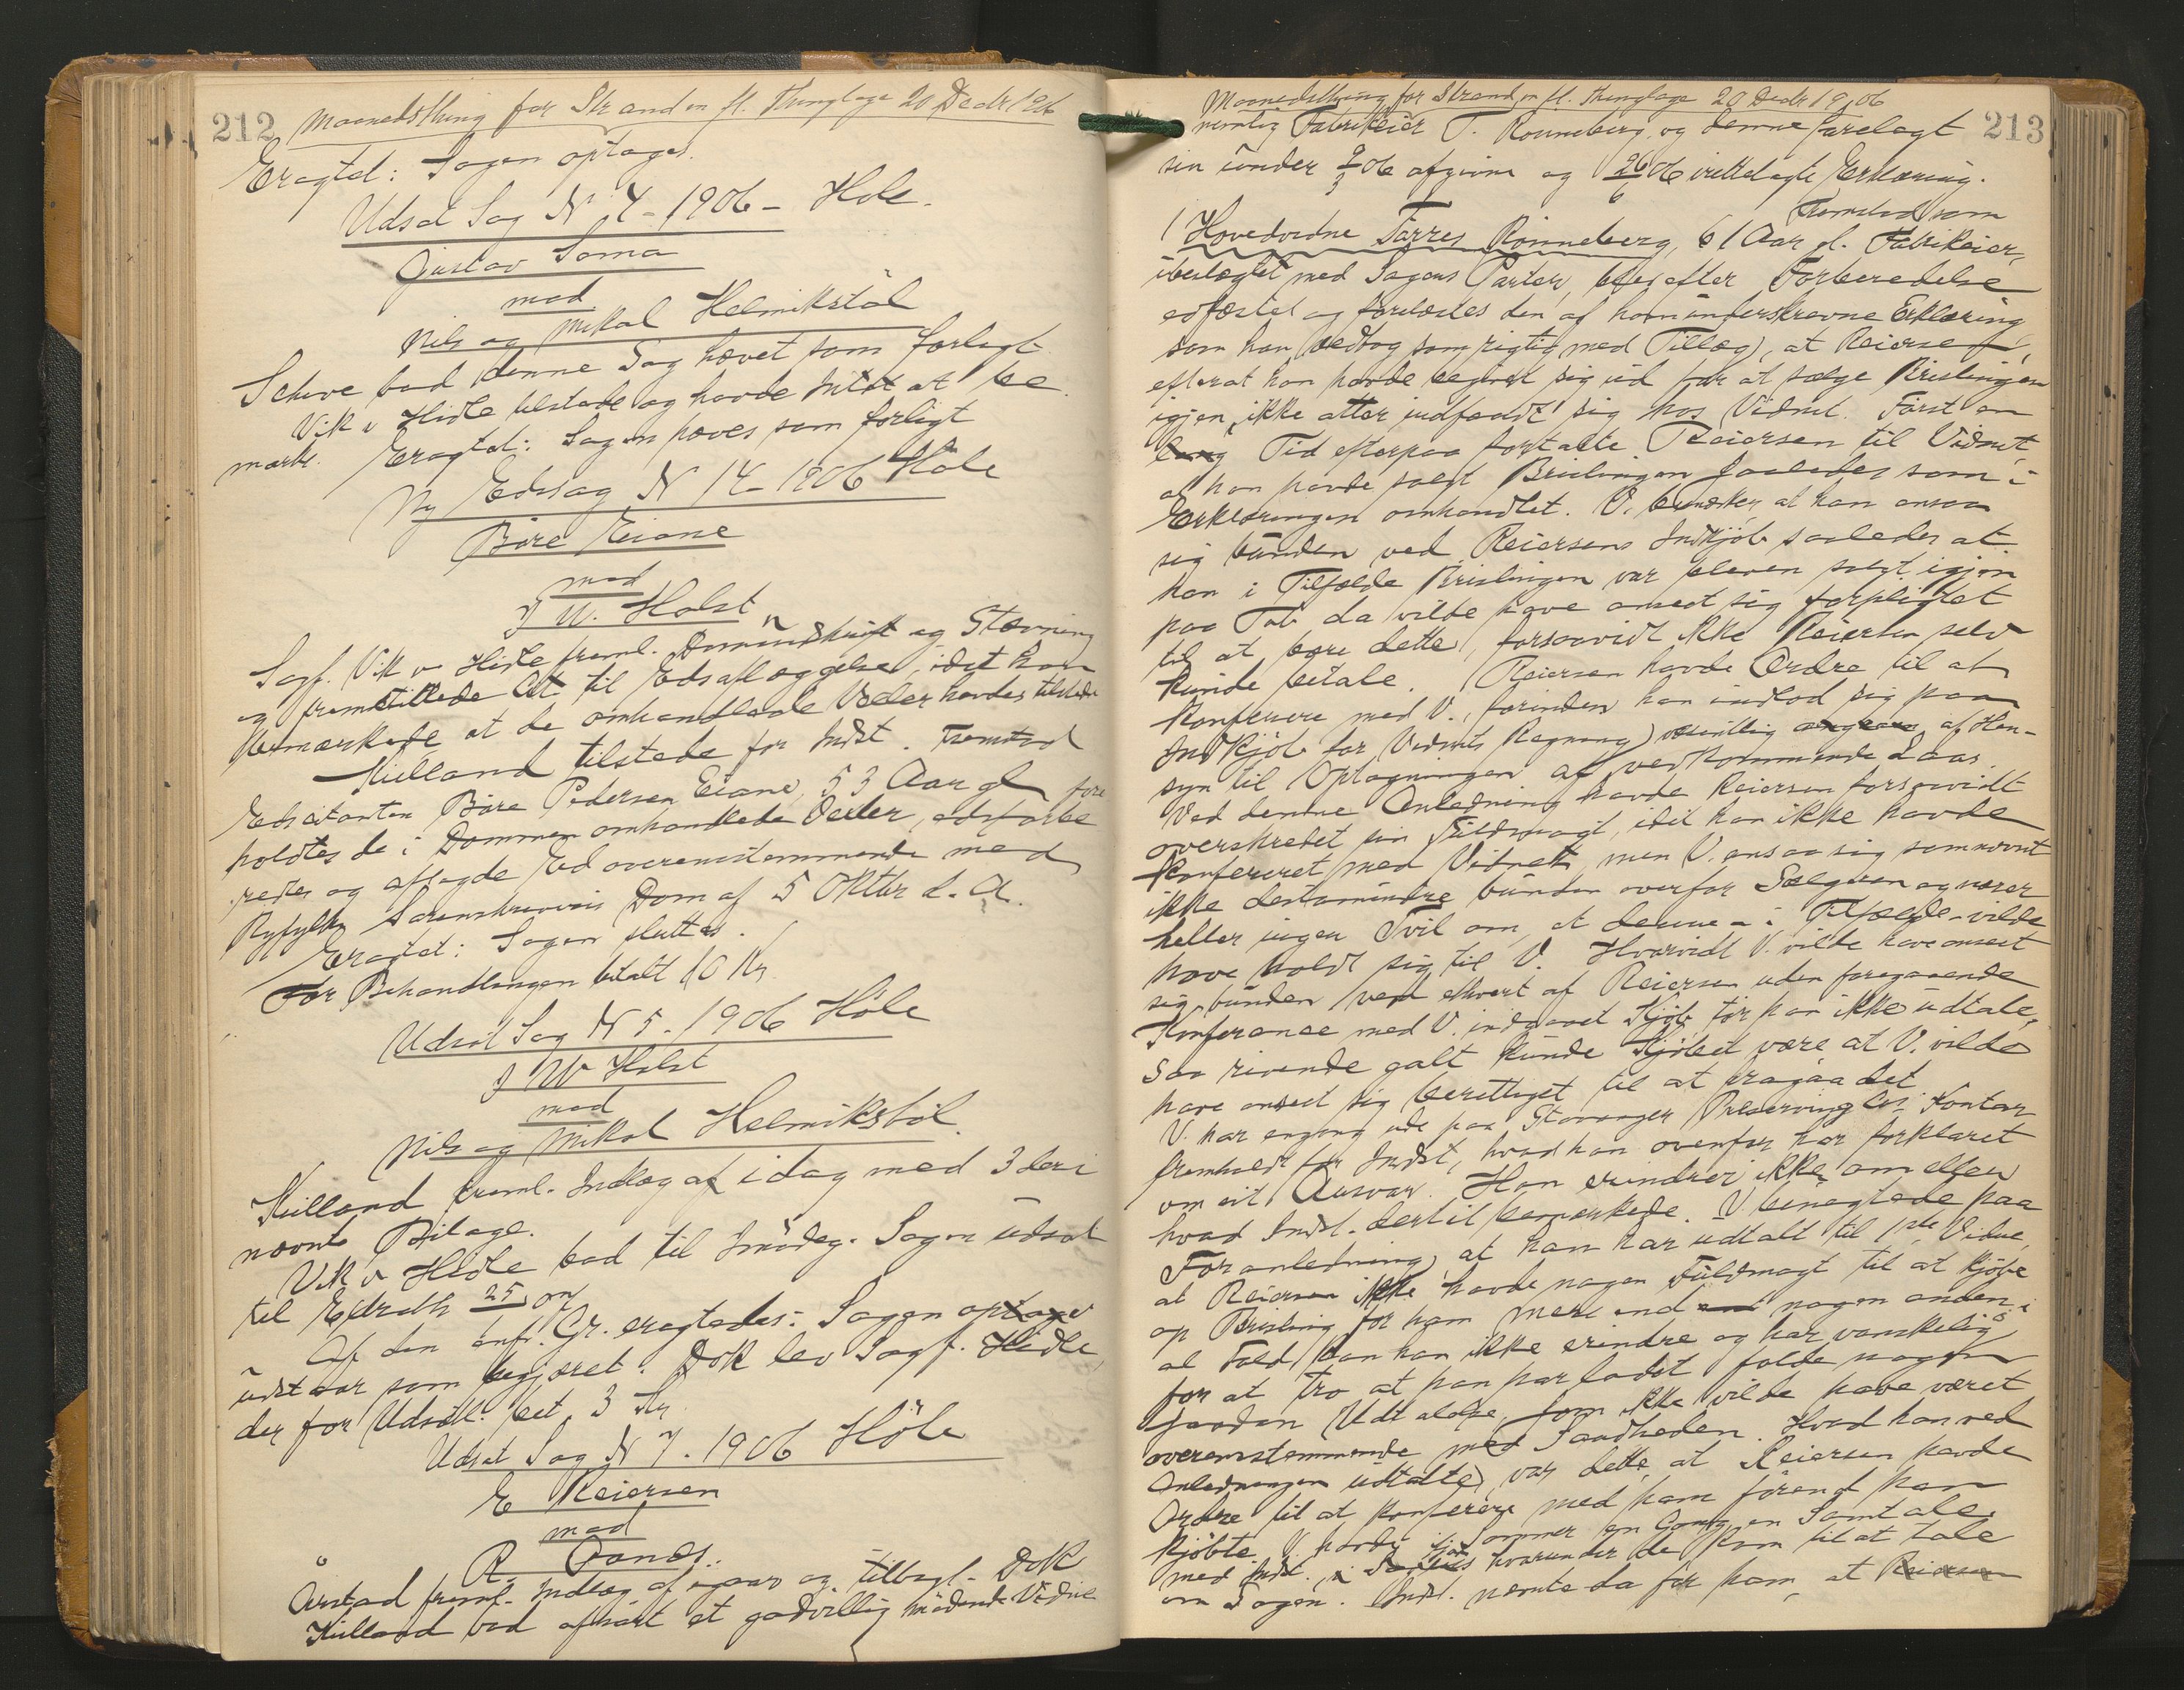 212 Maanedsthing for Strand m fl. Thinglage 20 Decbr 1906
Eragtet: Sagen optages.
Udsat Sag N 4 - 1906 - Höle.
Gustav Soma
mod
Nils og Mikal Helmikstöl
Schwe bad denne Sag hævet som forligt
Vik v Hidle tilstede og havde Intet at be
mærke. Eragtet: Sagen hæves som forligt
Ny Edssag N 14 - 1906 Höle
Båre Eiane
mod
J W. Holst
Sagf. Vik v Hidle freml. Domsudskrift og Stævning
og fremstillede Cit. til Edsaflæggelse, idet han
bemærkede at de omhandlede Veder havdes tilstede
Kielland tilstede for Indst. Fremstod
Edscitanten Båre Pedersen Eiane, 53 Aar gl fore
holdtes de i Dommen omhandlede Veder, edsforbe
redtes og aflagde Ed overensstemmende med
Ryfylke Sorenskriveris Dom af 5 Oktbr d. A.
Eragtet: Sagen sluttes.
For Behandlingen betalt 10 Kr
Udsat Sag N 5. 1906 Höle
J W Holst
mod
Nils og Mikal Helmikstöl.
Kielland freml. Indlæg af idag med 3 deri
nævnte Bilage.
Vik v Hidle bad til Imödeg. Sagen udsat
til Eidræth 25
Af den enf. Gr. eragtedes: Sagen
udstaar som begjæret. Dok lev Sagf. Hidle,
der for Udsæt. bet 3 Kr
Udsat Sag N 7. 1906 Höle
E Reiersen
mod
R.
Aarstad freml. Indlæg af igaar og tilbagl. Dok
Kielland bad afhört et godvillig mödende Vidne
Maanedsthing for Strand m fl. Thinglage 20 Decbr 1906
213
nemlig Fabrikeier T. Ronneberg, og denne forelagt
sin under 9/3 06 afgivne og 26/6 06 irettelagte Erklæring.
Fremstod som
1 Hovedvidne Tørres Rönneberg, 61 Aar gl. Fabrikeier,
ubeslægtet med Sagens Parter, blev efter Forberedelse
edfæstet og forelæstes den af ham underskrevne Erklæring
som han vedtog som rigtig med Tillæg, at Reiersen,
efterat han havde begivet sig ud for at sælge Brislingen
igjen, ikke atter indfandt sig hos Vidnet. Först en
lang Tid efterpaa fortalte Reiersen til Vidnet,
at han havde solgt Brislingen saaledes som i
Erklæringen omhandlet. V. bemærker at han ansaa
sig bunden ved Reiersens Indkjöb saaledes at
han i Tilfælde Brislingen var bleven solgt igjen
paa Tab da vilde have anseet sig forpligtet
til at bære dette, forsaavidt ikke Reiersen selv
kunde betale. Reiersen havde Ordre til at
konferere med V., forinden han indlod sig paa
Indkjöb for Vidnets Regning, væsentlig af Hen-
syn til Optagningen af vedkommende Laas.
Ved denne Anledning havde Reiersen forsaavidt
overskredet sin Fuldmagt, idet han ikke havde
konfereret med Vidnet, men V. ansaa sig som nævnt
ikke destomindre bunden overfor Sælgeren og nærer
heller ingen Tvil om, at denne - i Tilfælde - vilde
have holdt sig til V. Hvorvidt V. vilde have anseet
sig bunden ved ethvert af Reiersen uden foregaaende
Konferance med V. indgaaet Kjöb, tör han ikke udtale,
saa rivende galt kunde Kjöbet være at V. vilde
have anseet sig berettiget til at fragaa det
V. har engang ude paa Stavanger Preserving Co.s Kontor
fremholdt for Indst, hvad han ovenfor har forklaret
om sit Ansvar. Han erindrer ikke om eller
hvad Indst. dertil bemærkede. V benægtede paa
Foranledning, at han har udtalt til 1ste Vidne,
at Reiersen ikke havde nogen Fuldmagt til at kjöbe
op Brisling for ham mere end nogen anden, i
al Fald kan han ikke erindre og har vanskelig
for at tro at han har ladet falde nogen
saadan Udtalelse, som ikke vilde have været
overensstemmende med Sandheden. Hvad han ved
Anledningen udtalte, var dette, at Reiersen havde
Ordre til at konferere med ham förend han
kjöbte. V. havde isommer en Gang en Samtale
med Indst. hvorunder de kom til at tale
om Sagen. Indst. nævnte da for ham, at Reiersen